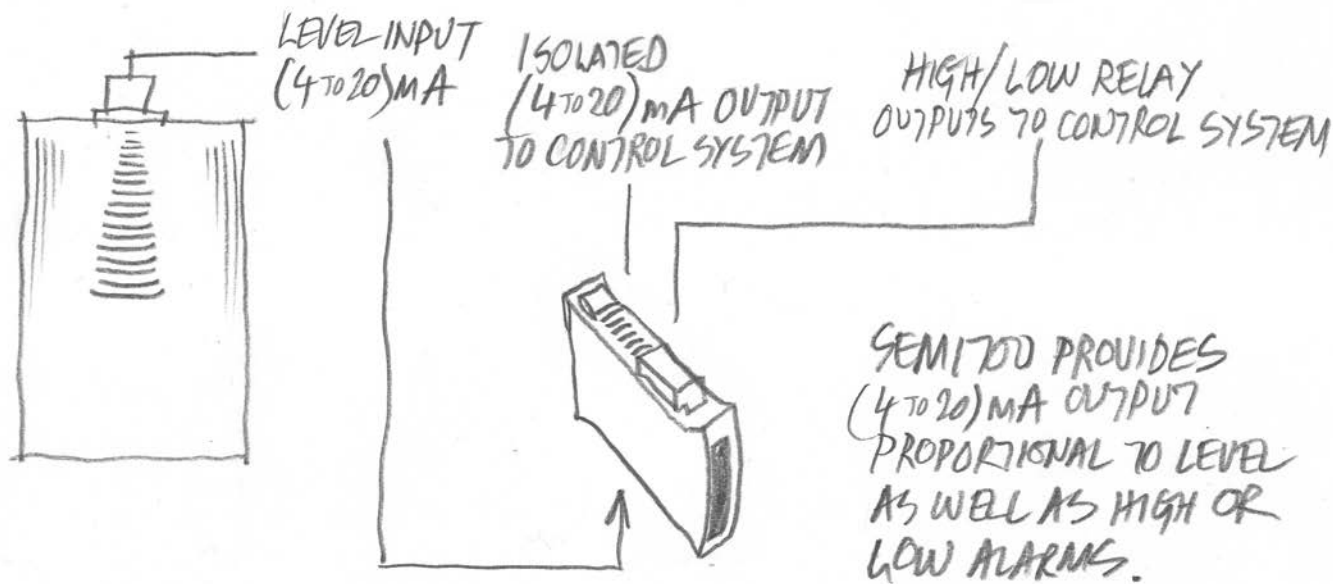 LEVEL INPUT
(4 TO 20)MA
ISOLATED
(4 TO 20)MA OUTPUT
TO CONTROL SYSTEM
HIGH/LOW RELAY
OUTPUTS TO CONTROL SYSTEM
SEM1700 PROVIDES
(4 TO 20)MA OUTPUT
PROPORTIONAL TO LEVEL
AS WELL AS HIGH OR
LOW ALARMS.